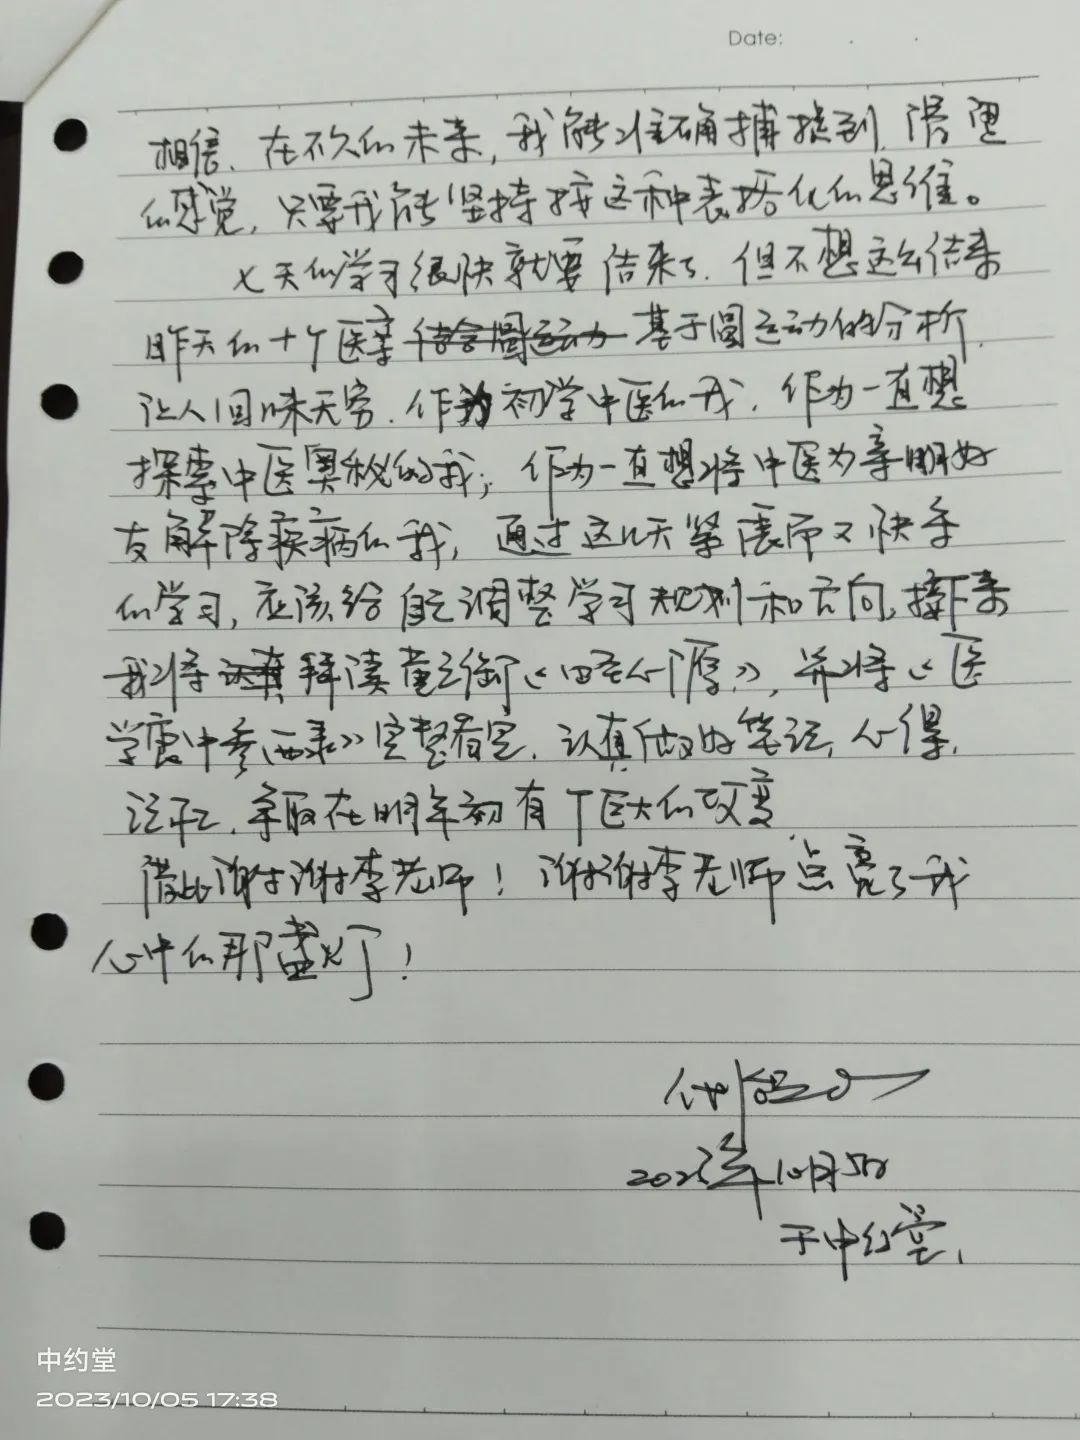 Date:
相信、在不久的未来,我能准确捕捉到滑
的感觉,只要我能坚持按这种表格化的思维。
七天的学习很快就要结束了、但不想这么结束
昨天的十个医案 基于圆运动的分析
让人回味无穷、作为初学中医的我、作为一直想
探索中医奥秘的我,作为一直想将中医为亲朋好
友解除疾病的我,通过这几天紧 而又快乐
的学习,应该给自己调整学习规划和方向,接下来
我将 拜读 《四圣心源》,并将《医
学衷中参西录》完整看完、认真做好笔记,心得,
争取在明年初有个巨大的改变
借此谢谢李老师!谢谢李老师点亮了我
心中的那盏灯!
2023年10月5日
于中约堂、
中约堂
2023/10/05 17:38